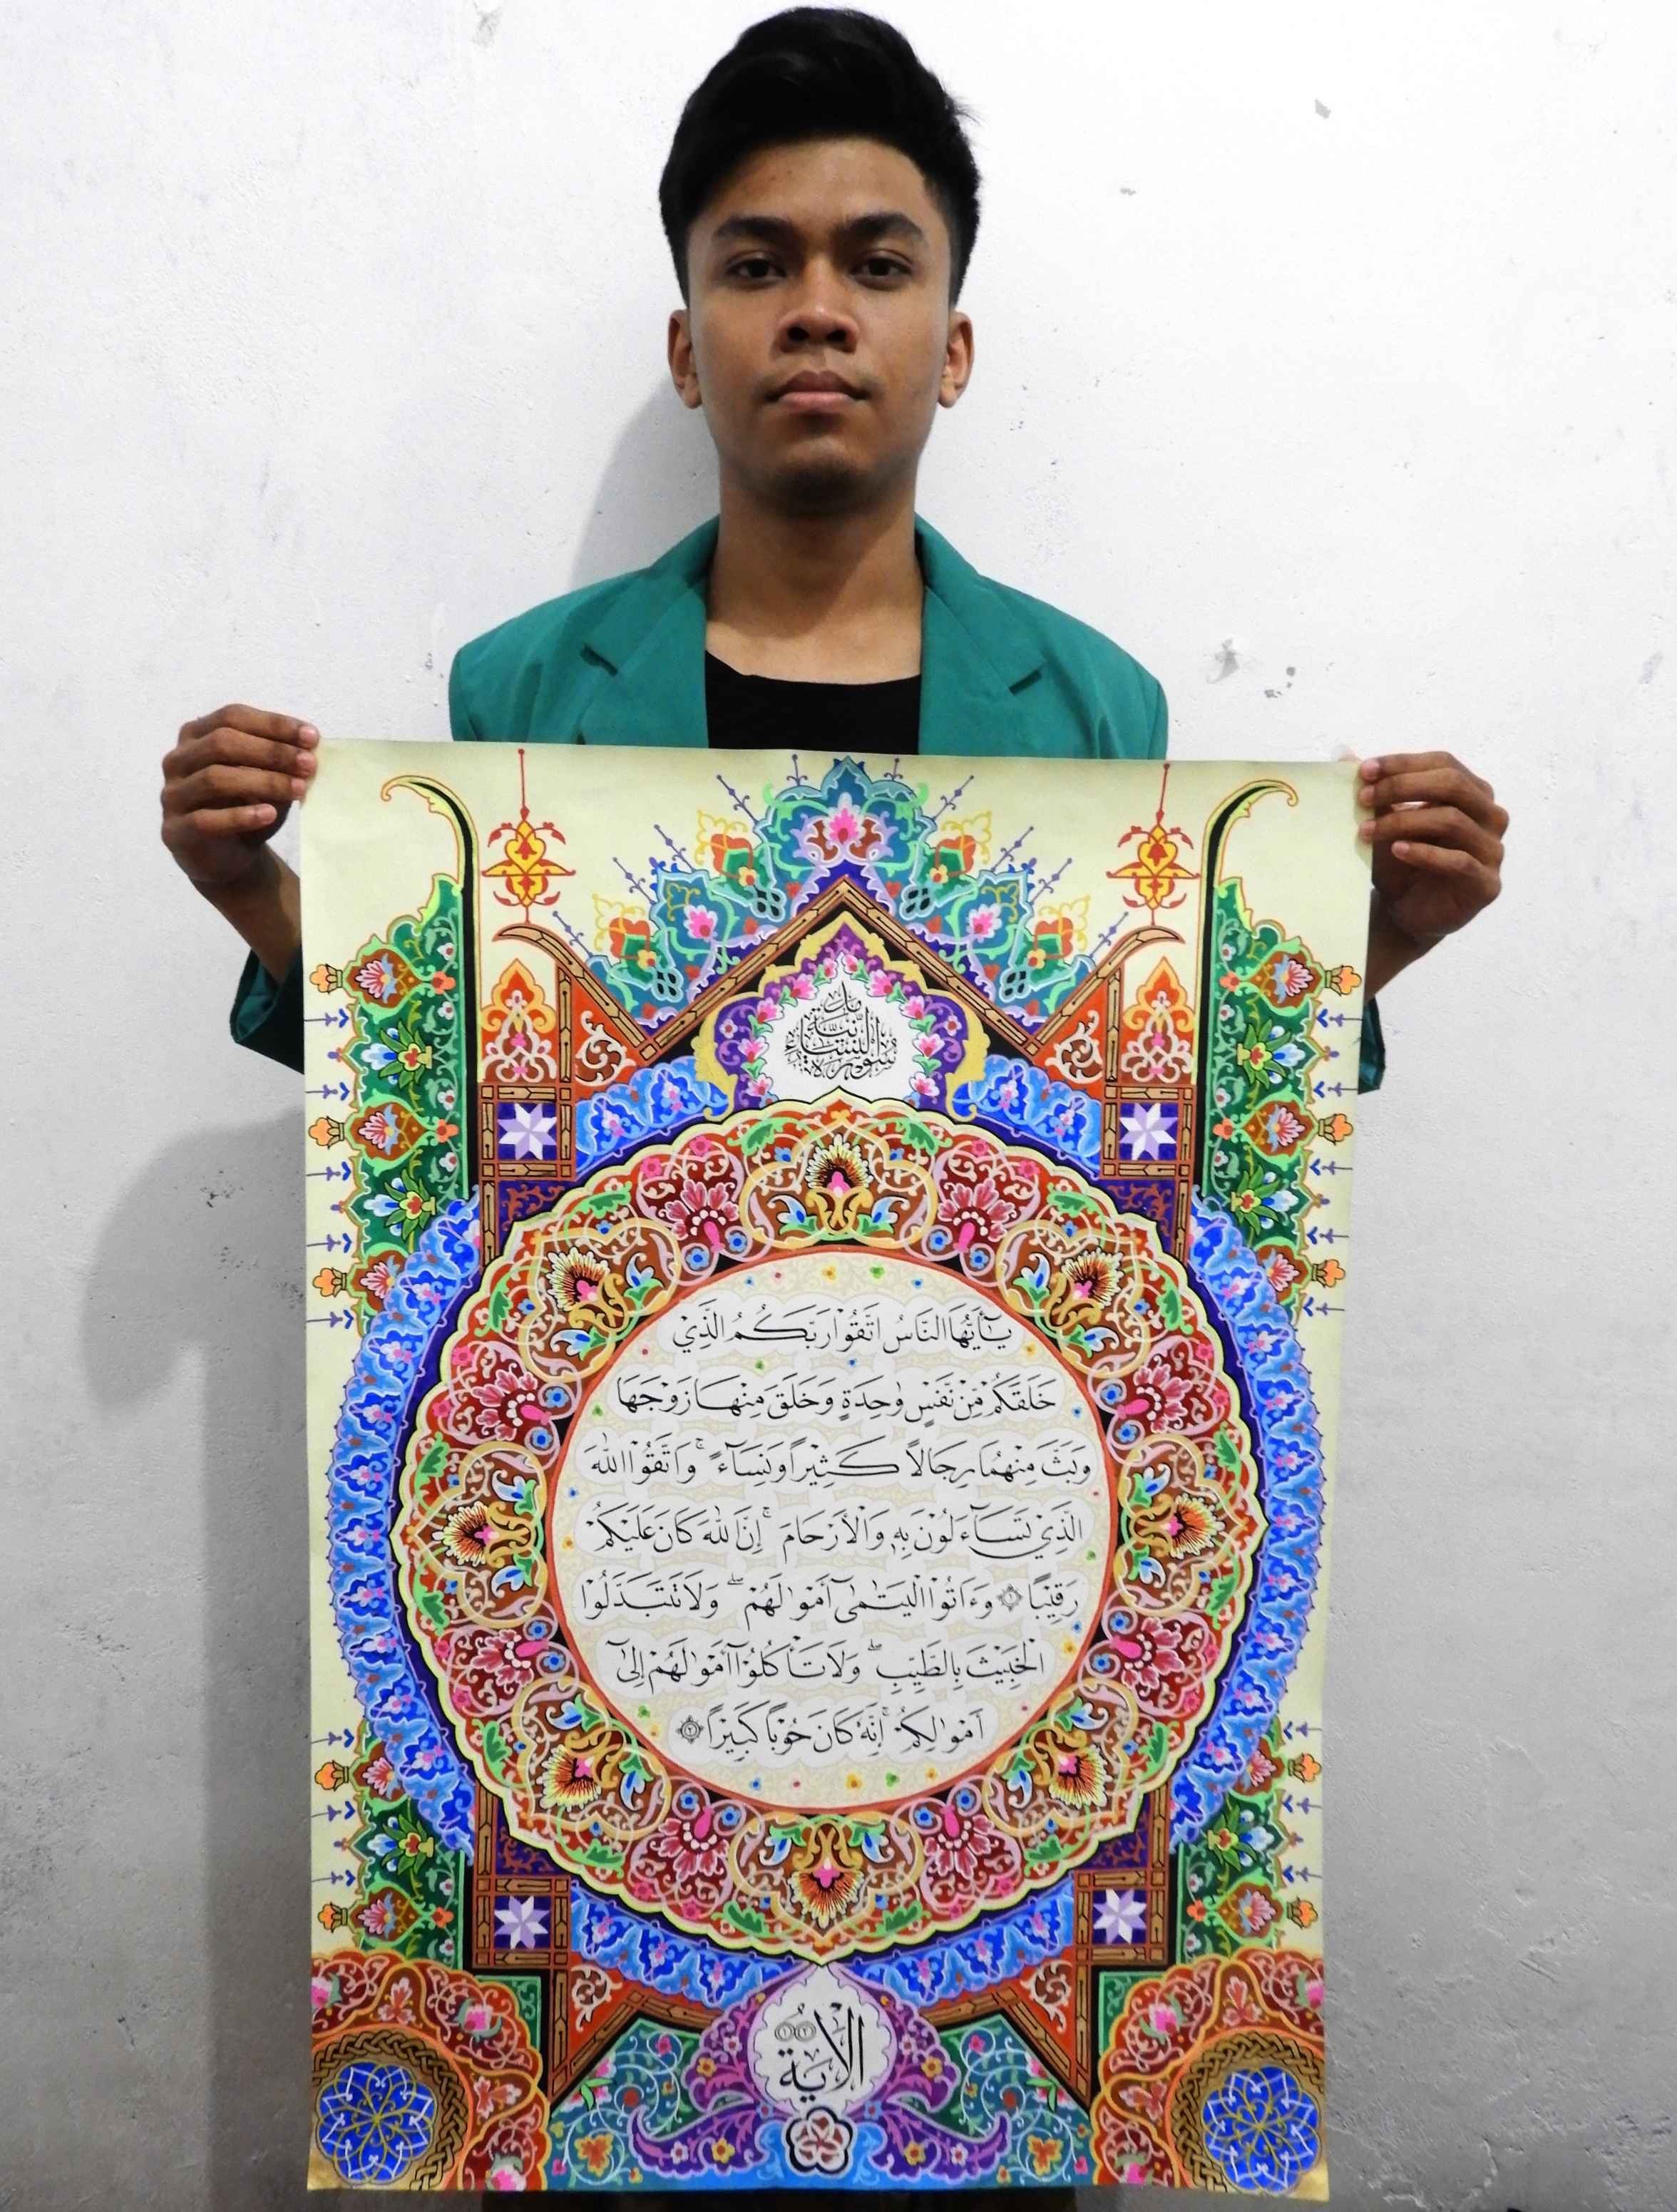 سورة النساء مدنية
يَٰٓأَيُّهَا النَّاسُ اتَّقُوْا رَبَّكُمُ الَّذِيْ
خَلَقَكُمْ مِّنْ نَّفْسٍ وَٰحِدَةٍ وَخَلَقَ مِنْهَا زَوْجَهَا
وَبَثَّ مِنْهُمَا رِجَالًا كَثِيْرًا وَنِسَآءً ۚ وَاتَّقُوْا اللهَ
الَّذِيْ تَسَآءَلُوْنَ بِهِ وَالْأَرْحَامَ ۚ إِنَّ اللهَ كَانَ عَلَيْكُمْ
رَقِيْبًا ١ وَءَاتُوْا الْيَتَٰمَىٰٓ أَمْوَٰلَهُمْ ۖ وَلَا تَتَبَدَّلُوْا
الْخَبِيْثَ بِالطَّيِّبِ ۖ وَلَا تَأْكُلُوْٓا أَمْوَٰلَهُمْ إِلَىٰٓ
أَمْوَٰلِكُمْ ۚ إِنَّهُ كَانَ حُوْبًا كَبِيْرًا ٢
الأية ١ ٢